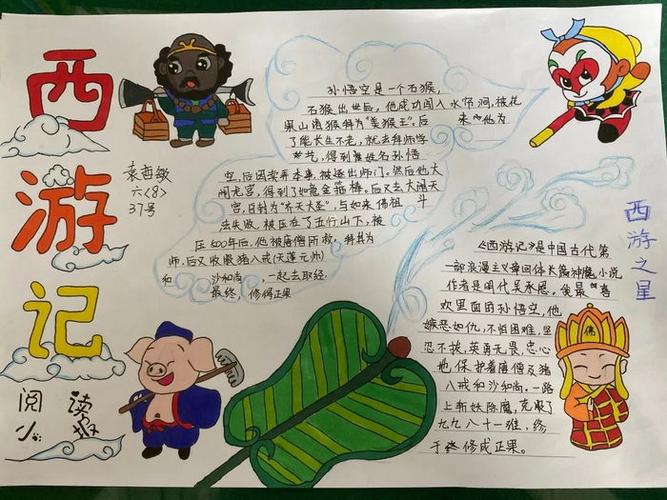 西
游
记
阅读
小报
袁
六<8>
37号
孙悟空是一个石猴,
石猴出世后,他成功闯入水帘洞,被花
果山诸猴拜为"美猴王",后来 他为
了能长生不老,就去拜师学
艺,得到 姓名孙悟
空,后因卖弄本事,被逐出师门。然后他大
闹龙宫,得到了如意金箍棒,后又去大闹天
宫,自封为"齐天大圣",与如来佛祖斗
法失败,被压在了五行山下,被
压500年后,他被唐僧所救,拜其为
师,后又收服猪八戒(天蓬元帅)
和沙和尚,一起去取经,
最终,修得正果
西游之星
《西游记》是中国古代第
一部浪漫主义章回体长篇神魔小说
作者是明代吴承恩,我最喜
欢里面的孙悟空,他
嫉恶如仇,不怕困难,坚
忍不拔,英勇无畏,忠心
地保护着唐僧及猪
八戒和沙和尚。一路
上斩妖除魔,克服了
九九八十一难,终
于修成正果。
佛